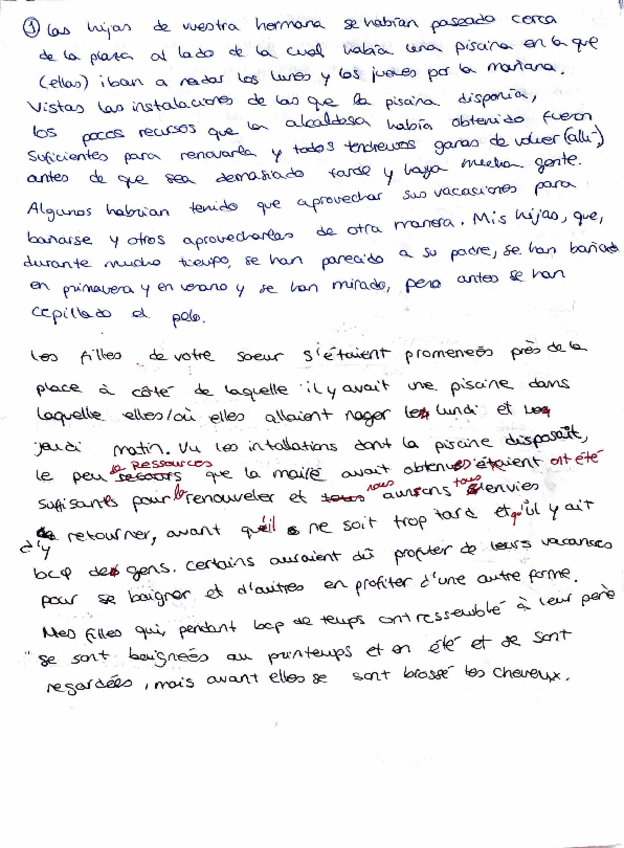 ① Las hijas de vuestra hermana se habían paseado cerca
de la plaza al lado de la cual había una piscina en la que
(ellas) iban a nadar los lunes y los jueves por la mañana.
Vistas las instalaciones de las que la piscina disponía,
los pocos recursos que la alcaldesa había obtenido fueron
suficientes para renovarla y todos tendremos ganas de volver (allí)
antes de que sea demasiado tarde y haya mucha gente.
Algunos habrían tenido que aprovechar sus vacaciones para
bañarse y otros aprovecharlas de otra manera. Mis hijas, que,
durante mucho tiempo, se han parecido a su padre, se han bañado
en primavera y en verano y se han mirado, pero antes se han
cepillado el pelo.
Les filles de votre soeur s'étaient promeneés près de la
place à côté de laquelle il y avait une piscine dans
laquelle elles/où elles allaient nager les lundi et les
jeudi matin. Vu les intallations dont la piscine disposait,
de Ressources
le peu secours que la mairé avait obtenues étaient ont été
suffisants pour la renouveler et tous nous aurons tous envies
d'y
de retourner, avant qu'il ne soit trop tard et qu'il y ait
bcp des gens. Certains auraient dû profiter de leurs vacances
pour se baigner et d'autres en profiter d'une autre forme.
Mes filles qui, pendant bcp de temps ont ressemblé à leur père
se sont baigneés au printemps et en été et se sont
regardées, mais avant elles se sont brossé les cheveux.